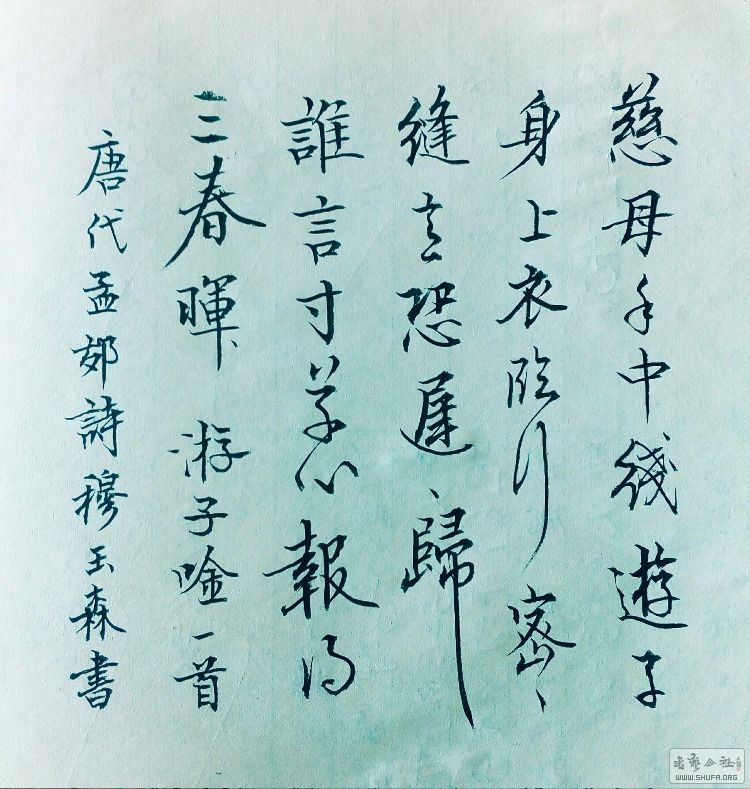 慈母手中綫遊子
身上衣临行密、
縫意恐遲、歸
誰言寸草心報得
三春暉 游子唫一首
唐代孟郊詩穆玉森書
书艺公社
WWW.SHUFA.ORG